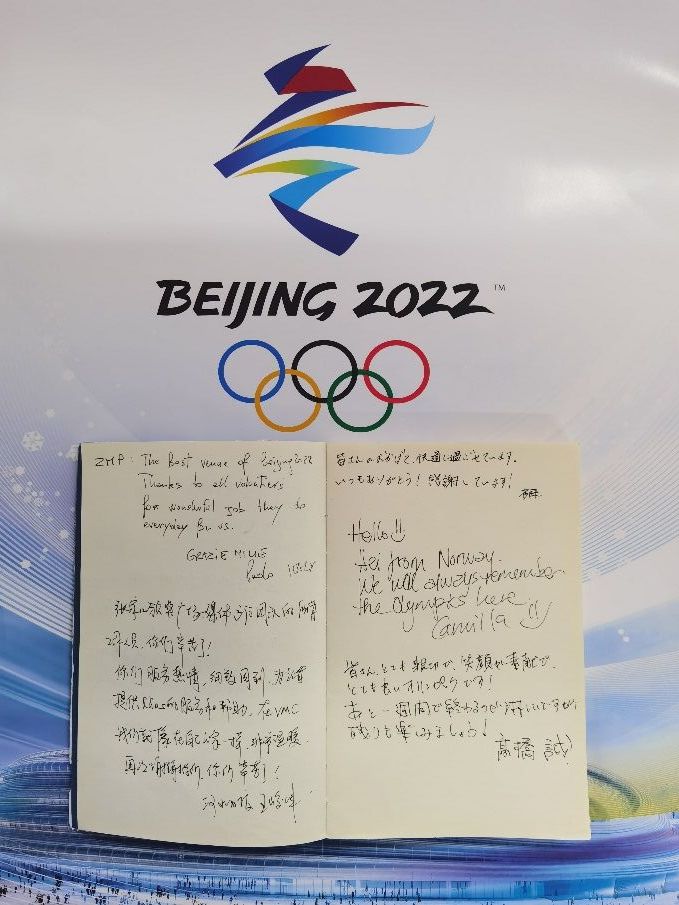 BEIJING 2022™
ZMP: The Best venue of Beijing2022
Thanks to all volunteers
for wonderful job they do
everyday for us.
GRAZIE MILLE
Paolo ITALY
张家口颁奖广场媒体运行团队的所有
工作人员,你们辛苦了!
你们服务热情,细致周到,为记者
提供的服务和帮助,在VMC
我们就像在自己家一样,非常温暖
再次谢谢你们,你们辛苦!
河北日报
皆さんのおかげで、快適に過ごせています。
いつもありがとう! 感謝しています!
Hello!
Hei from Norway.
We will always remember
the olympics here
Camilla
皆さん、とても親切で、笑顔が素敵で、
とても良いオリンピックです!
あと一週間で終わるのが淋しいですが
残りも楽しみましょう!
高橋 誠